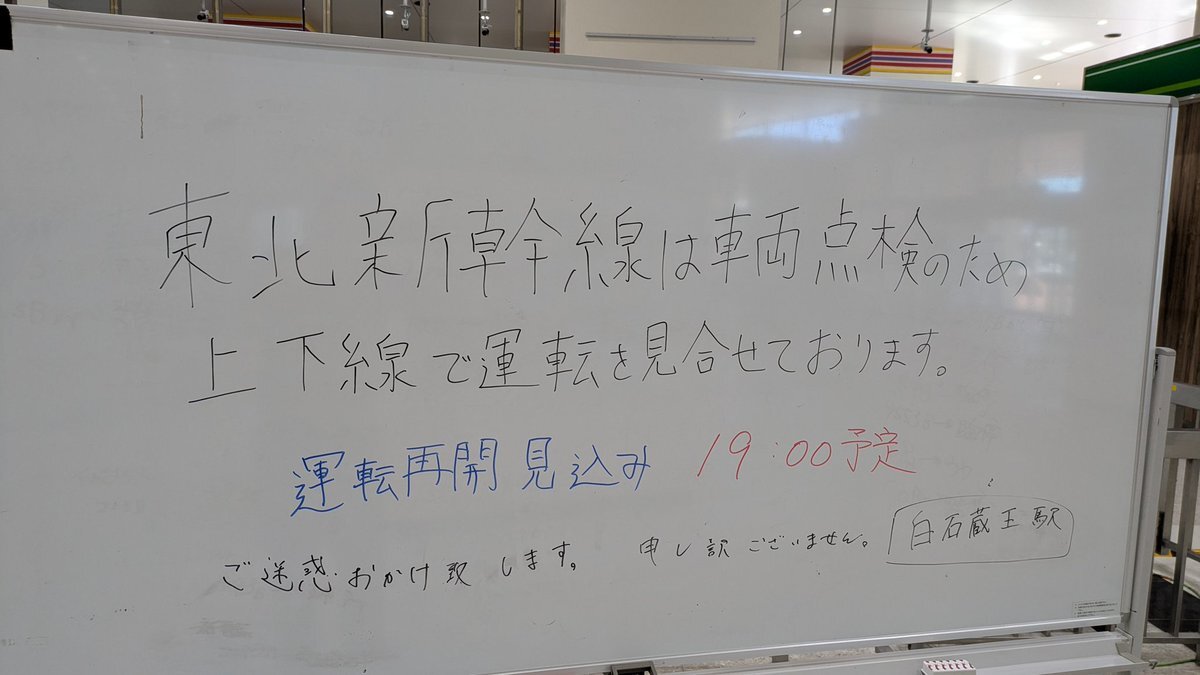 東北新幹線は車両点検のため
上下線で運転を見合せております。
運転再開見込み 19:00予定
ご迷惑おかけ致します。 申し訳ございません。
白石蔵王駅